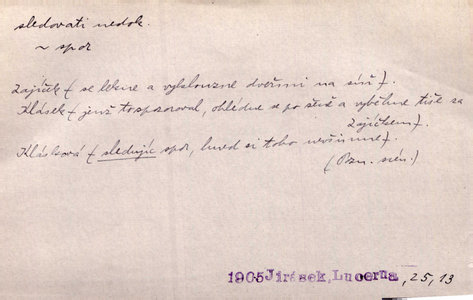 sledovati nedok.
~ spor
Zajíček { se lekne a vyklouzne dveřmi na síň }.
Klásek { jenž to pozoroval, ohlédne se po ženě a vyběhne tiše za
Zajíčkem }.
Klásková { sledujíc spor, hned si toho nevšimne }.
(Pozn. scén.)
1905 Jirásek, Lucerna, 25, 13